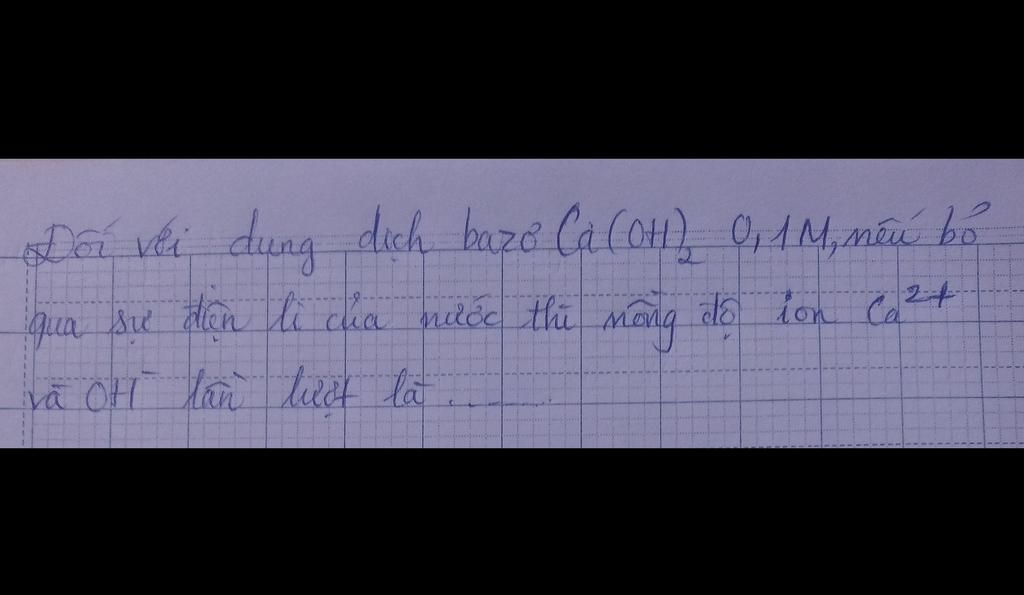 Đối với dung dịch bazơ Ca(OH)₂ 0,1M, nếu bỏ
qua sự điện li của nước thì nồng độ ion Ca²⁺
và OH⁻ lần lượt là ........